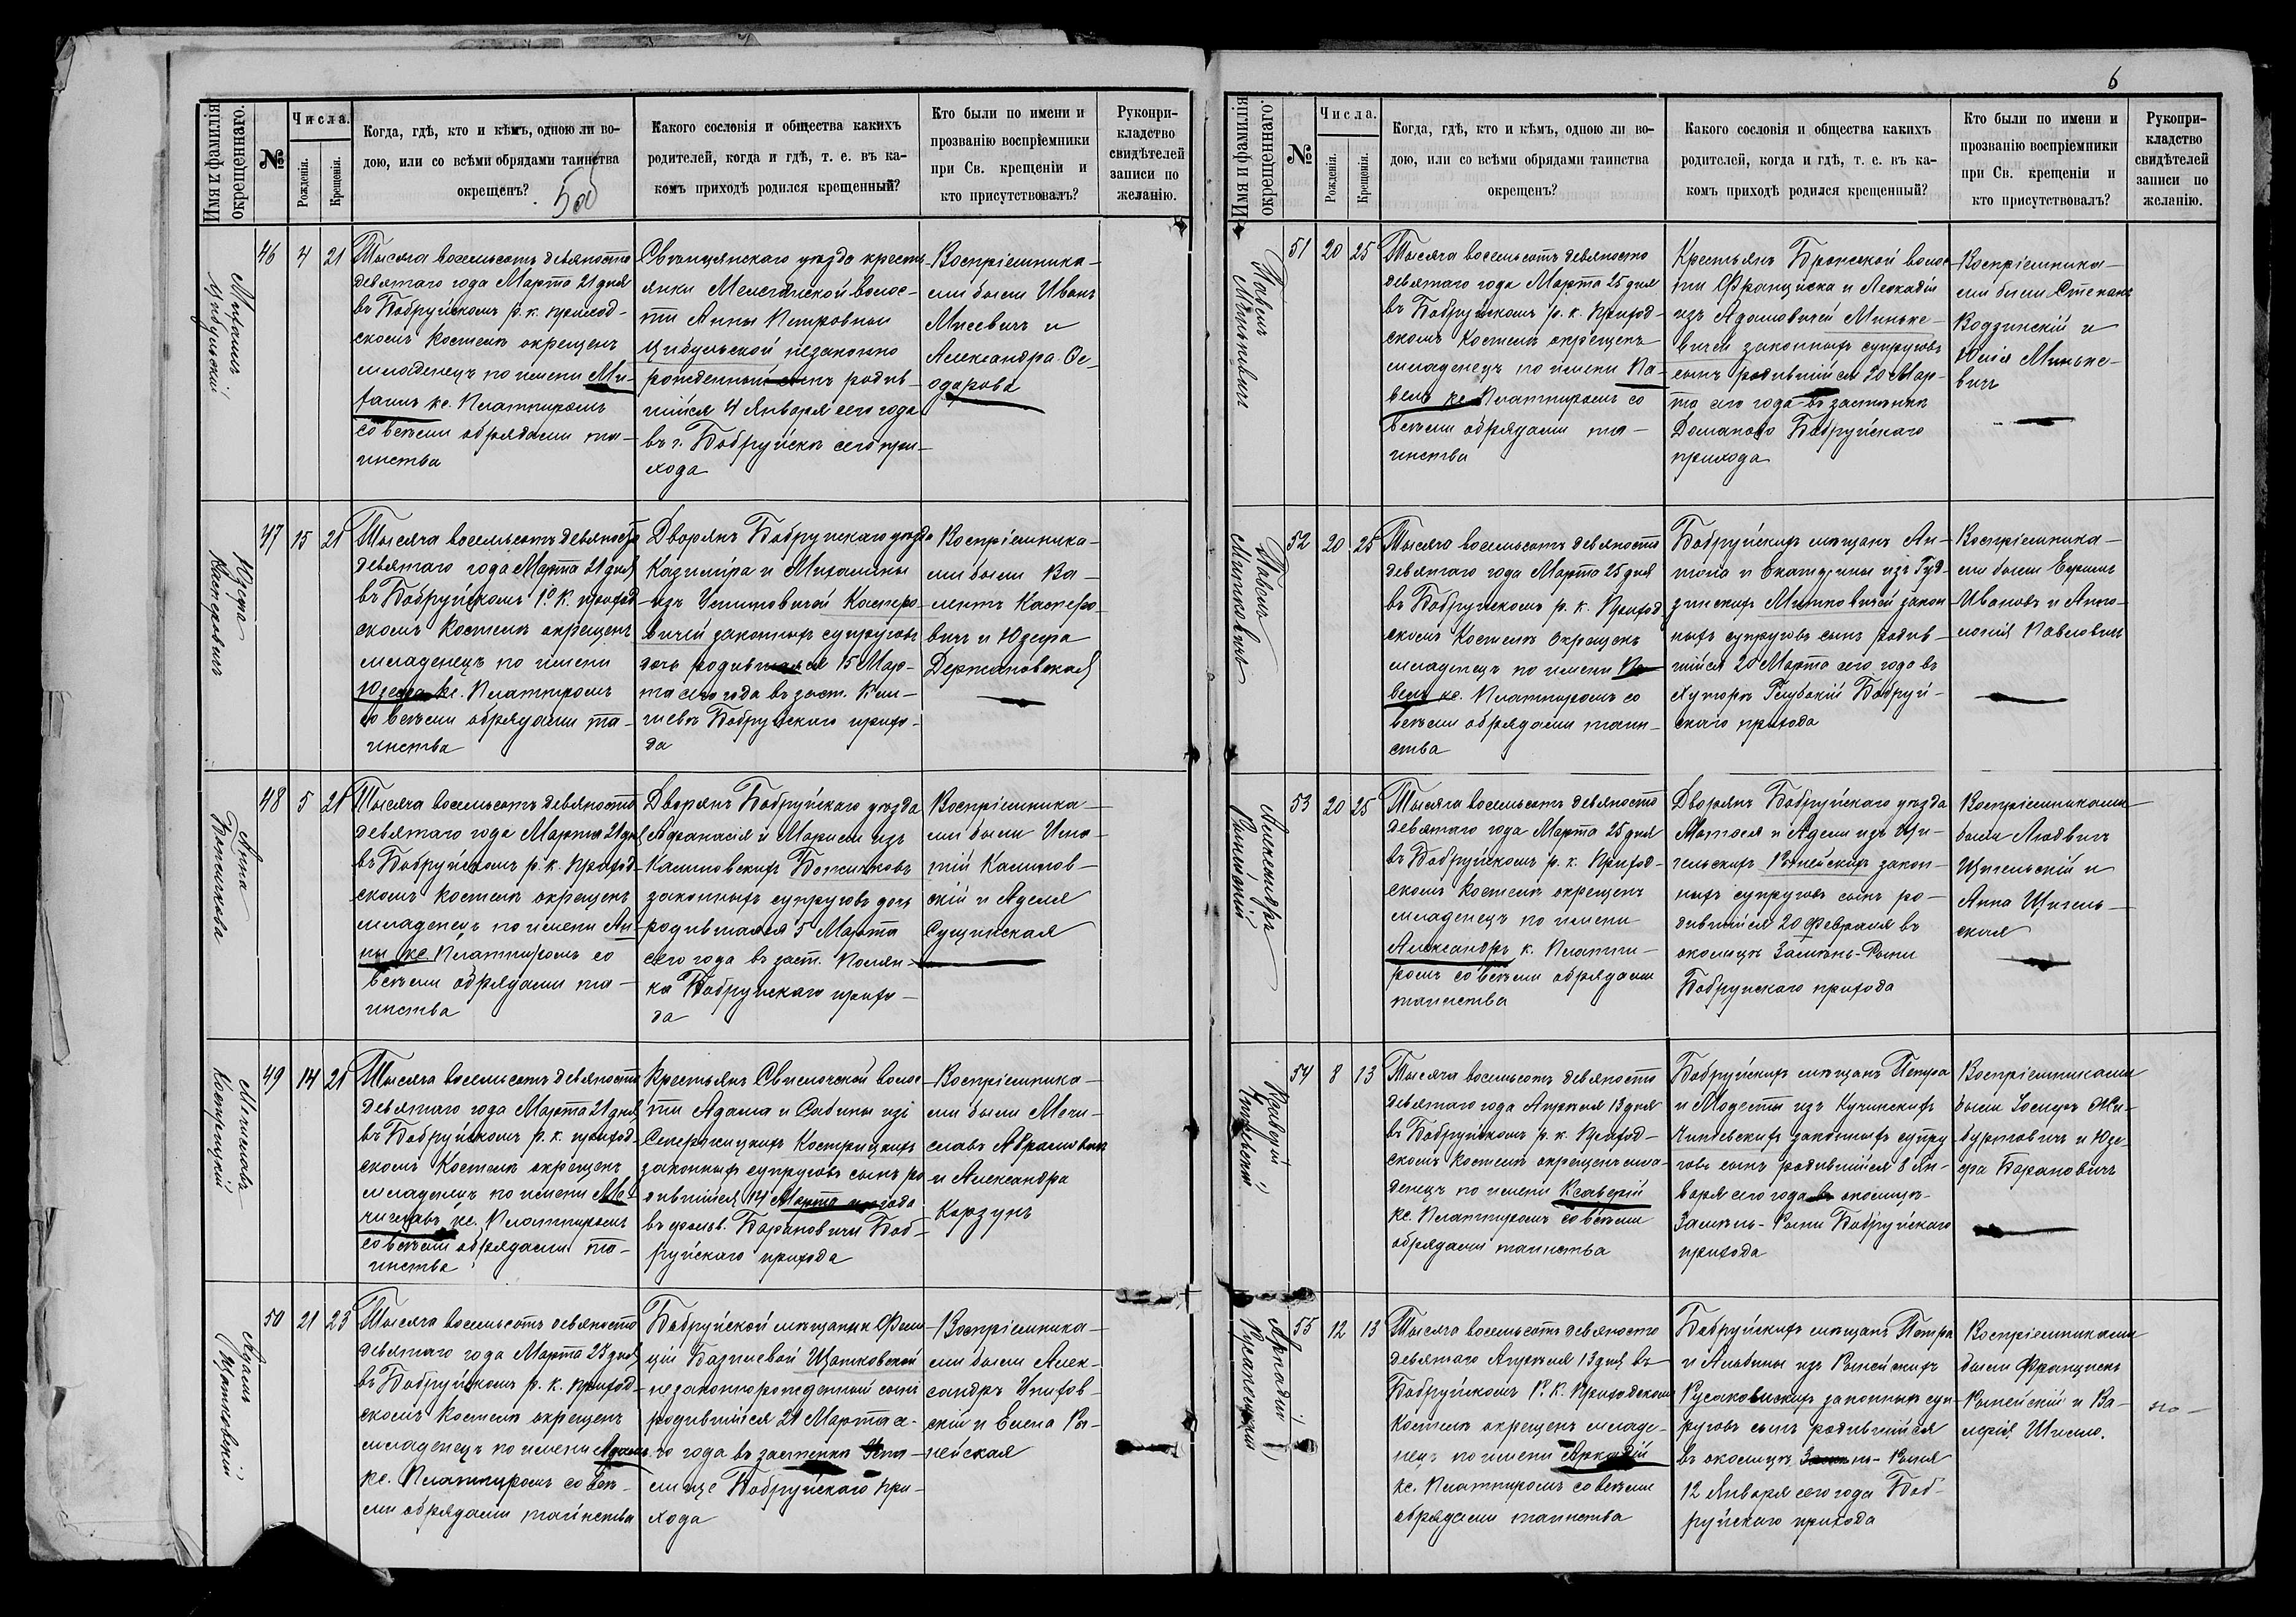 Имя и фамилія окрещеннаго.
№
Числа.
Рожденія.
Крещенія.
Когда, гдѣ, кто и кѣмъ, одною ли во-
дою, или со всѣми обрядами таинства
окрещенъ?
500
Какого сословія и общества какихъ
родителей, когда и гдѣ, т. е. въ ка-
комъ приходѣ родился крещенный?
Кто были по имени и
прозванію воспріемники
при Св. крещеніи и
кто присутствовалъ?
Рукопри-
кладство
свидѣтелей
записи по
желанію.
46 4 21
Тысяча восемьсотъ девяносто
девятаго года Марта 21 дня
въ Бобруйскомъ р. к. приход-
скомъ костелѣ окрещенъ
младенецъ по имени Ми-
каилъ кс. Платпиромъ
со всѣми обрядами та-
инства
Свѣнцянскаго уѣзда кресть-
янки Мелегянской волос-
ти Анны Петровны
Цибульской незаконно
рожденный сынъ родив-
шійся 4 Января сего года
въ г. Бобруйскѣ сего при-
хода
Воспріемника-
ми были Иванъ
Мисевичъ и
Александра Ѳе-
одарова
47 15 21
Юзефа
Касперовичъ
Тысяча восемьсотъ девяносто
девятаго года Марта 21 дня
въ Бобруйскомъ р. к. приход-
скомъ костелѣ окрещенъ
младенецъ по имени
Юзефа кс. Платпиромъ
со всѣми обрядами та-
инства
Дворянъ Бобруйскаго уѣзда
Казиміра и Михалины
изъ Устиновичей Касперо-
вичей законныхъ супруговъ
дочь родившаяся 15 Мар-
та сего года въ заст.
Бобруйскаго прихо-
да
Воспріемника-
ми были Ва-
лентъ Касперо-
вичъ и Юзефа
Держановская
48 5 21
Анна
Божичкова
Тысяча восемьсотъ девяносто
девятаго года Марта 21 дня
въ Бобруйскомъ р. к. приход-
скомъ костелѣ окрещенъ
младенецъ по имени Ан-
ны кс. Платпиромъ со
всѣми обрядами та-
инства
Дворянъ Бобруйскаго уѣзда
Афанасія и Маріи изъ
Калиновскихъ Божичковъ
законныхъ супруговъ дочь
родившаяся 5 Марта
сего года въ заст. Полян-
ка Бобруйскаго прихо-
да
Воспріемника-
ми были Игна-
тій Калинов-
скій и Аделя
Сущинская
49 14 21
Мечиславъ
Кострицкій
Тысяча восемьсотъ девяносто
девятаго года Марта 21 дня
въ Бобруйскомъ р. к. приход-
скомъ костелѣ окрещенъ
младенецъ по имени Ме-
числавъ кс. Платпиромъ
со всѣми обрядами та-
инства
Крестьянъ Свислочской волос-
ти Адама и Сабины изъ
Кострицкихъ
законныхъ супруговъ сынъ ро-
дившійся 14 Марта года
въ фольв. Барановичи Боб-
руйскаго прихода
Воспріемника-
ми были Мечи-
славъ Абрамовичъ
и Александра
Корзунъ
50 21 23
Адамъ
Щатковскій
Тысяча восемьсотъ девяносто
девятаго года Марта 23 дня
въ Бобруйскомъ р. к. приход-
скомъ костелѣ окрещенъ
младенецъ по имени Адамъ
кс. Платпиромъ со всѣ-
ми обрядами таинства
Бобруйской мѣщанки Фели-
ціи Щатковской
незаконнорожденный сынъ
родившійся 21 Марта се-
го года въ застенкѣ
Бобруйскаго при-
хода
Воспріемника-
ми были Алек-
сандръ
и Елена Ры-
нейская
6
Имя и фамилія окрещеннаго.
№
Числа.
Рожденія.
Крещенія.
Когда, гдѣ, кто и кѣмъ, одною ли во-
дою, или со всѣми обрядами таинства
окрещенъ?
Какого сословія и общества какихъ
родителей, когда и гдѣ, т. е. въ ка-
комъ приходѣ родился крещенный?
Кто были по имени и
прозванію воспріемники
при Св. крещеніи и
кто присутствовалъ?
Рукопри-
кладство
свидѣтелей
записи по
желанію.
51 20 25
Павелъ
Минькевичъ
Тысяча восемьсотъ девяносто
девятаго года Марта 25 дня
въ Бобруйскомъ р. к. приход-
скомъ костелѣ окрещенъ
младенецъ по имени Па-
велъ кс. Платпиромъ со
всѣми обрядами та-
инства
Крестьянъ Брожской волос-
ти Франциска и Леокадіи
изъ Адамовичей Миньке-
вичей законныхъ супруговъ
сынъ родившійся 20 Мар-
та сего года въ застенкѣ
Доманово Бобруйскаго
прихода
Воспріемника-
ми были Степанъ
Водзинскій и
Юлія Миньке-
вичъ
52 20 25
Павелъ
Митковичъ
Тысяча восемьсотъ девяносто
девятаго года Марта 25 дня
въ Бобруйскомъ р. к. приход-
скомъ костелѣ окрещенъ
младенецъ по имени Па-
велъ кс. Платпиромъ со
всѣми обрядами таин-
ства
Бобруйскихъ мѣщанъ Ан-
тона и Екатерины изъ Гуд-
зинскихъ Митковичей закон-
ныхъ супруговъ сынъ родив-
шійся 20 Марта сего года въ
хуторѣ Глубокій Бобруй-
скаго прихода
Воспріемника-
ми были
Ивановъ и Анто-
нонія Павловичъ
53 20 25
Александръ
Тысяча восемьсотъ девяносто
девятаго года Марта 25 дня
въ Бобруйскомъ р. к. приход-
скомъ костелѣ окрещенъ
младенецъ по имени
Александръ к. Платпи-
ромъ со всѣми обрядами
таинства
Дворянъ Бобруйскаго уѣзда
Матвея и Адели изъ Щи-
гельскихъ Рынейскихъ закон-
ныхъ супруговъ сынъ ро-
дившійся 20 Февраля въ
околицѣ Замѣнь-Рыни
Бобруйскаго прихода
Воспріемниками
были Людвигъ
Щигельскій и
Анна Щигель-
ская
54 8 13
Ксаверій
Тысяча восемьсотъ девяносто
девятаго года Апрѣля 13 дня
въ Бобруйскомъ р. к. приход-
скомъ костелѣ окрещенъ мла-
денецъ по имени Ксаверій
кс. Платпиромъ со всѣми
обрядами таинства
Бобруйскихъ мѣщанъ Петра
и Модесты изъ Кучинскихъ
законныхъ супру-
говъ сынъ родившійся 8 Ян-
варя сего года въ околицѣ
Замѣнь-Рыни Бобруйскаго
прихода
Воспріемниками
были Іосифъ Жи-
буртовичъ и Юзе-
фа Барановичъ
55 12 13
Аркадій
Тысяча восемьсотъ девяносто
девятаго Апрѣля 13 дня въ
Бобруйскомъ р. к. приходскомъ
костелѣ окрещенъ младе-
нецъ по имени Аркадій
кс. Платпиромъ со всѣми
обрядами таинства
Бобруйскихъ мѣщанъ Петра
и Альбины изъ Рынейскихъ
Русаковскихъ законныхъ суп-
руговъ сынъ родившійся
въ околицѣ Замѣнь-Рыня
12 Января сего года Боб-
руйскаго прихода
Воспріемниками
были Францискъ
Рынейскій и Ва-
лерія Шишло.